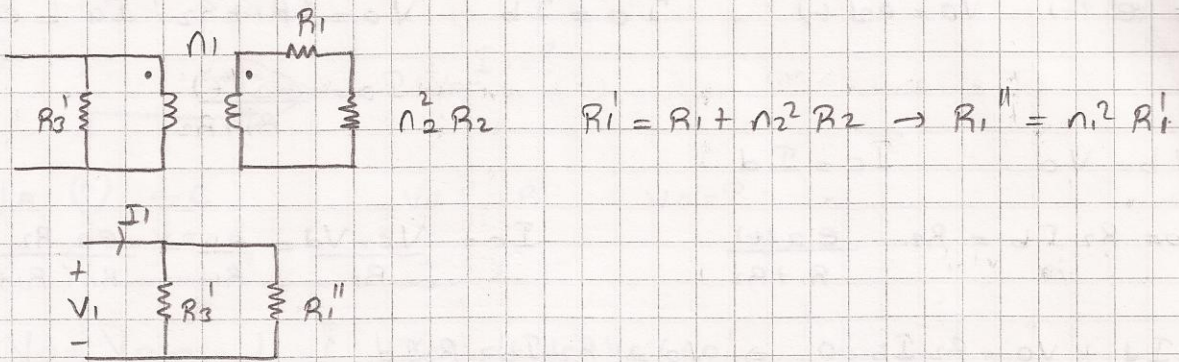 R1
n1
R3' n2² R2 R1' = R1 + n2² R2 → R1'' = n1² R1'
I1
+
V1 R3' R1''
-